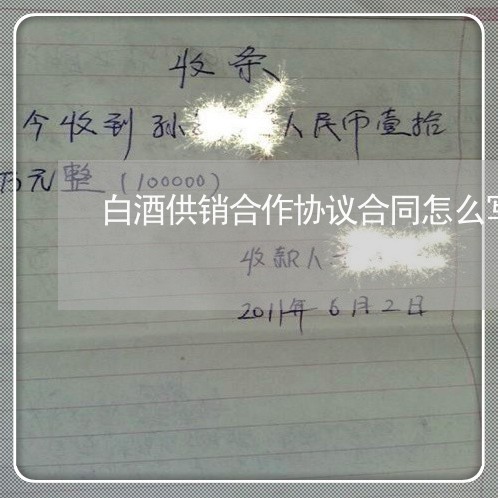 收条
今收到孙 人民币壹拾
万元整(100000)
白酒供销合作协议合同怎么写
收款人
2011年6月2日